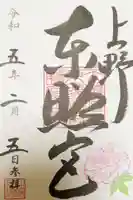 上野
東照宮
令和
五年二月
五日参拝